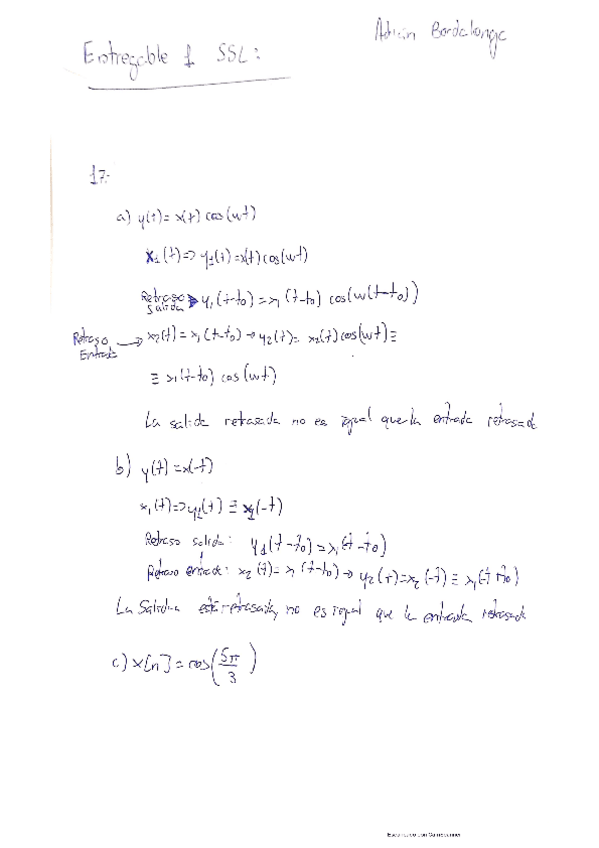 Adrián Bordalonga
Entregable 1 SSL:
17.
a) y(t) = x(t) cos(wt)
x₁(t) => y₁(t) = x(t) cos(wt)
Retraso salida → y₁(t-t₀) = x₁(t-t₀) cos(w(t-t₀))
Retraso Entrada → x₂(t) = x₁(t-t₀) → y₂(t) = x₂(t) cos(wt) ≡
≡ x₁(t-t₀) cos(wt)
La salida retrasada no es igual que la entrada retrasada
b) y(t) = x(-t)
x₁(t) => y₁(t) ≡ x₁(-t)
Retraso salida: y₁(t-t₀) = x₁(-t-t₀)
Retraso entrada: x₂(t) = x₁(t-t₀) → y₂(t) = x₂(-t) ≡ x₁(-t+t₀)
La Salida está retrasada, no es igual que la entrada retrasada
c) x[n] = cos(5π/3)
Escaneado con CamScanner